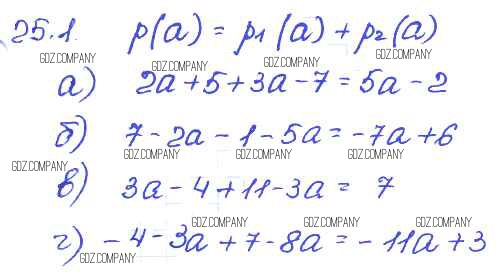 25.1. p(a) = p₁(a) + p₂(a)
GDZ.COMPANY GDZ.COMPANY GDZ.COMPANY GDZ.COMPANY
а) 2a + 5 + 3a - 7 = 5a - 2
б) 7 - 2a - 1 - 5a = -7a + 6
GDZ.COMPANY GDZ.COMPANY GDZ.COMPANY
GDZ.COMPANY
в) 3a - 4 + 11 - 3a = 7
GDZ.COMPANY GDZ.COMPANY GDZ.COMPANY
г) - 4 - 3a + 7 - 8a = - 11a + 3
GDZ.COMPANY